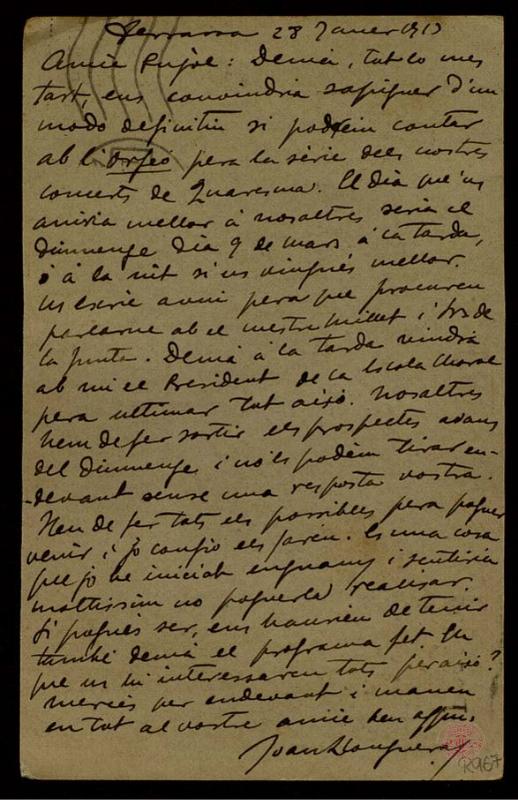 Terrassa 28 Janer 1913
Amic Pujol: Demà, tot lo mes
tart, ens convindria sapiguer d'un
modo definitiu si podrèm contar
ab l'Orfeó pera la sèrie dels nostres
concerts de Quaresma. El dia que 'ns
aniria mellor à nosaltres seria el
diumenge dia 9 de mars à la tarda,
ò à la nit si us vingués mellor.
Us escric avui pera que procureu
parlarne ab el mestre Millet i
la Junta. Demà à la tarda vindrà
ab mi el President de la Escola Choral
pera ultimar tot això. Nosaltres
hem de fer sortir els prospectes abans
del diumenge i no 'ls podèm tirar en-
-devant sense una resposta vostra.
Heu de fer tots els possibles pera poguer
venir i jo confio els farèu. Es una cosa
que jo he iniciat enguany i sentiria
moltissim no poguerla realisar.
Si pogués ser, ens haurieu de tenir
també demà el programa fet. Oh
que us hi interessareu tots peraixò?
Mercès per endevant i maneu
en tot al vostre amic ben affm.
Joan Llongueras
R967